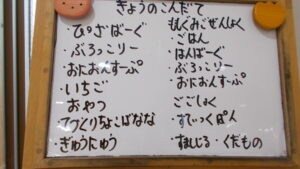 きょうのこんだて
・ぴざばーぐ
・ぶろっこりー
・おにおんすーぷ
・いちご
おやつ
てづくりちょこばなな
・ぎゅうにゅう
ももぐみごぜんしょく
・ごはん
・はんばーぐ
・ぶろっこりー
・おにおんすーぷ
ごごしょく
・すてぃっくぱん
・すましじる・くだもの